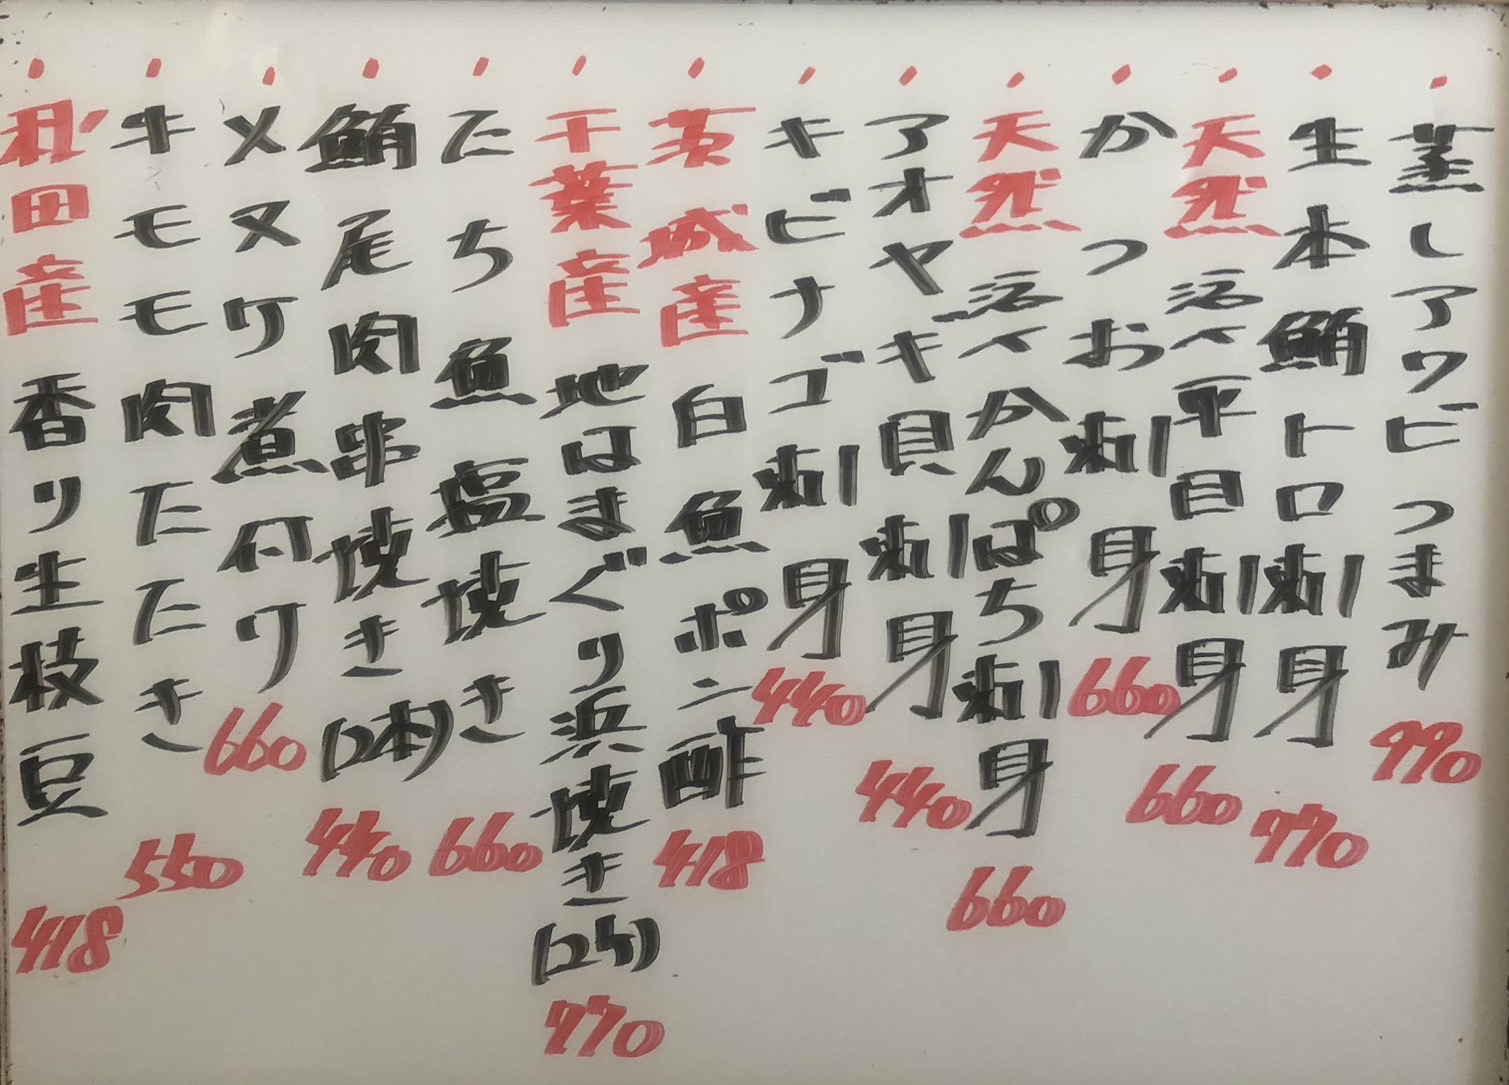 ・蒸しアワビつまみ 990
・生本鮪トロ刺身 770
・天然活〆平目刺身 660
・かつお刺身 660
・天然活〆かんぱち刺身 660
・アオヤギ貝刺身 440
・キビナゴ刺身 440
・茨城産白魚ポン酢 418
・千葉産地はまぐり浜焼き(2ケ) 770
・たち魚塩焼き 660
・鮪尾肉串焼き(2本) 440
・メヌケ煮付け 660
・牛モモ肉たたき 550
・秋田産香り生枝豆 418